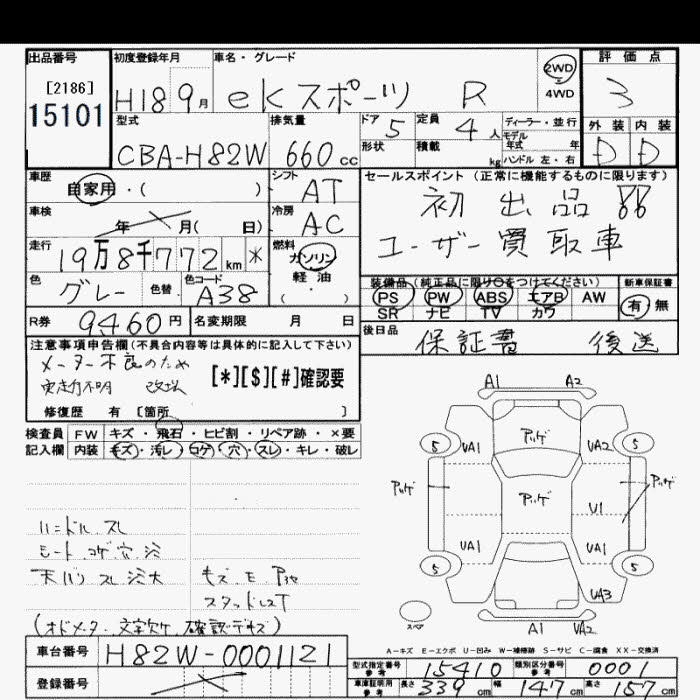 出品番号 初度登録年月 車名・グレード 評価点
[2186]
15101
H18 9月 ekスポーツ R 2WD 4WD 3
型式 排気量 ドア 5 定員 4人 ディーラー・並行
モデル年式 年
外装 内装
CBA-H82W 660cc 形状 積載 kg ハンドル 左・右 D D
車歴 シフト AT セールスポイント(正常に機能するものに限ります)
自家用・( )
初出品!!
車検 年 月( 日) 冷房 AC
ユーザー買取車
走行 19万8千772km * 燃料 ガソリン 軽油 ・( )
色 グレー 色替 色コード A38
装備品(純正品に限り○をつけてください) 新車保証書
PS PW ABS エアB AW 有・無
SR ナビ TV カワ
R券 9460円 名変期限 月 日
後日品 保証書 後送
注意事項申告欄(不具合内容等は具体的に記入して下さい)
メーター不良のため
実走行不明 改ザン [*][$][#]確認要
修復歴 有 [箇所 ]
検査員 FW キズ・飛石・ヒビ割・リペア跡・×要
記入欄 内装 キズ・汚レ・コゲ・穴・スレ・キレ・破レ
A1 A2
アッゲ
5 UA1 UA2 5
アッゲ アッゲ アッゲ
U1
UA1 UA1
5 5
UA3
スペア A1 UA2
ハンドル スレ
シート コゲ穴
キズ E
スタッドレスT
(オドメーター 文字欠ケ 確認デキズ)
A-キズ E-エクボ U-凹み W-補修跡 S-サビ C-腐食 XX-交換済
車台番号 H82W-0001121
登録番号
型式指定番号 参考 15410 類別区分番号 参考 0001
車庫証明用 参考 長さ 339cm 幅 147cm 高さ 157cm